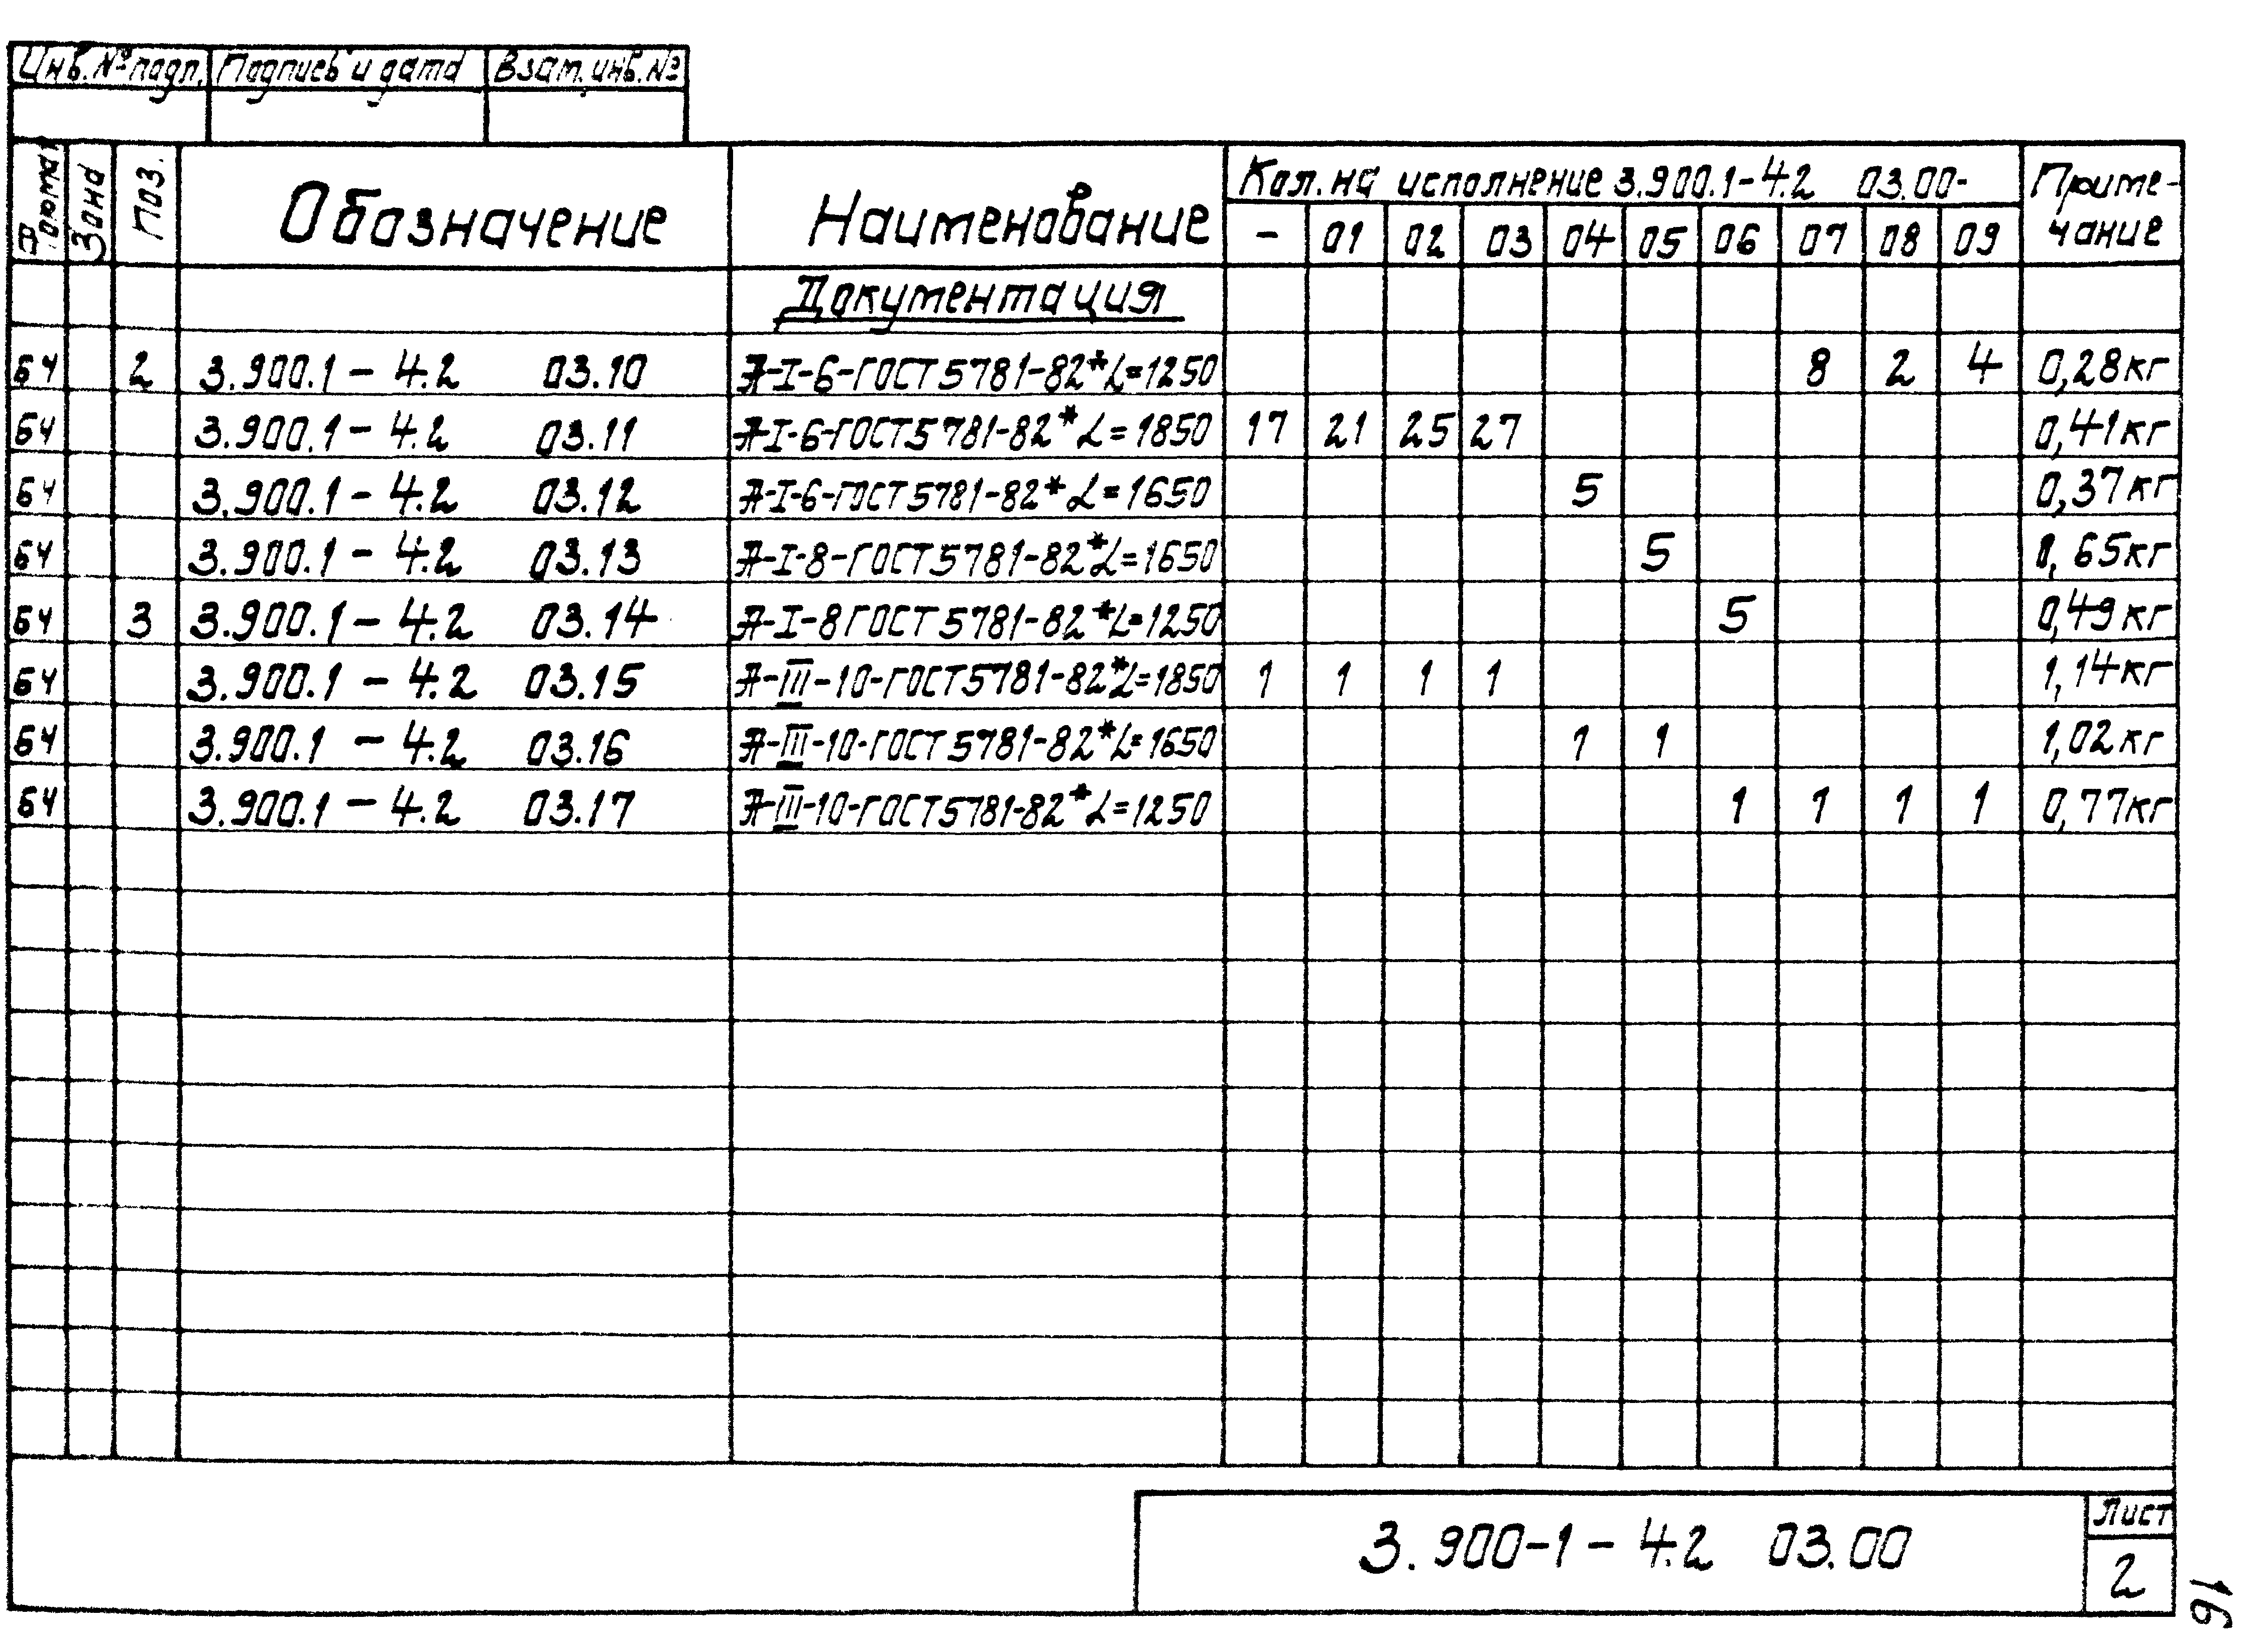 Инв. № подп. Подпись и дата Взам. инв. №
Формат Зона Поз. Обозначение Наименование Кол. на исполнение 3.900.1-4.2 03.00- Приме-
чание
- 01 02 03 04 05 06 07 08 09
Документация
БЧ 2 3.900.1-4.2 03.10 А-I-6-ГОСТ 5781-82* L=1250 8 2 4 0,28кг
БЧ 3.900.1-4.2 03.11 А-I-6-ГОСТ 5781-82* L=1850 17 21 25 27 0,41кг
БЧ 3.900.1-4.2 03.12 А-I-6-ГОСТ 5781-82* L=1650 5 0,37кг
БЧ 3.900.1-4.2 03.13 А-I-8-ГОСТ 5781-82* L=1650 5 0,65кг
БЧ 3 3.900.1-4.2 03.14 А-I-8 ГОСТ 5781-82* L=1250 5 0,49кг
БЧ 3.900.1-4.2 03.15 А-III-10-ГОСТ 5781-82* L=1850 1 1 1 1 1,14кг
БЧ 3.900.1-4.2 03.16 А-III-10-ГОСТ 5781-82* L=1650 1 1 1,02кг
БЧ 3.900.1-4.2 03.17 А-III-10-ГОСТ 5781-82* L=1250 1 1 1 1 0,77кг
3.900-1-4.2 03.00
Лист
2
16